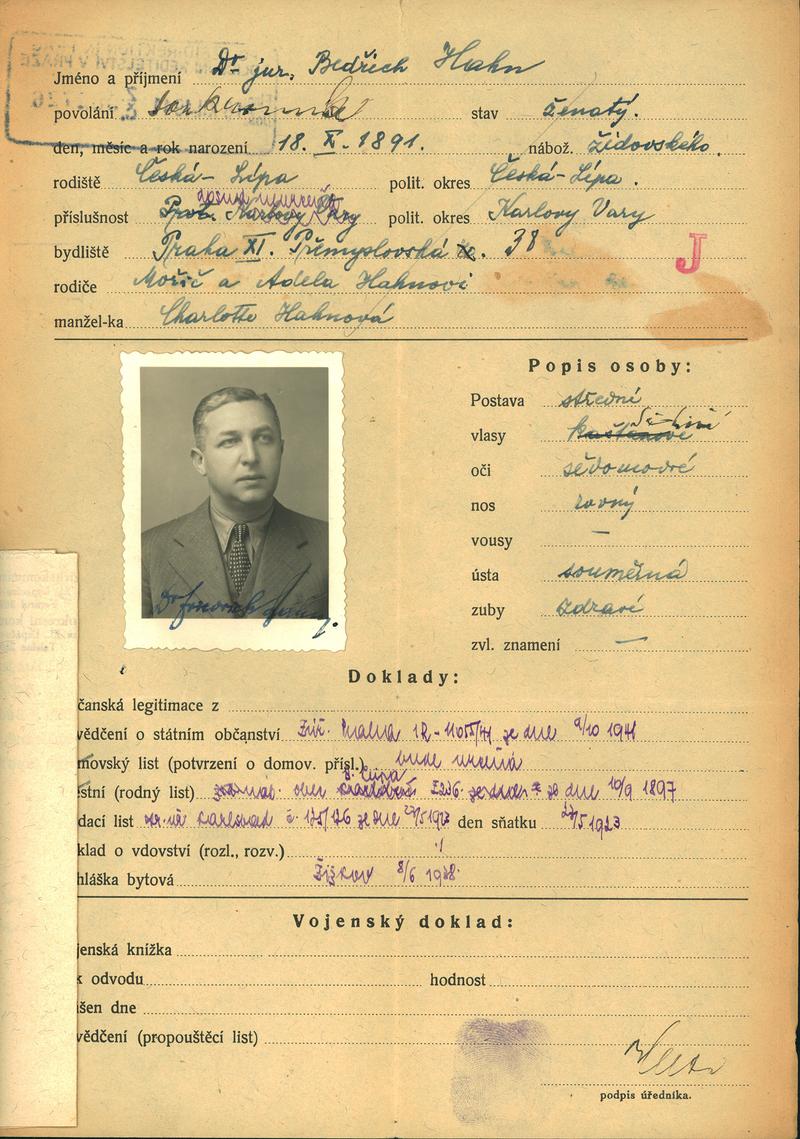 Jméno a příjmení Dr jur. Bedřich Hahn
povolání stav ženatý.
den, měsíc a rok narození 18. X. 1891. nábož. židovského.
rodiště Česká-Lípa polit. okres Česká-Lípa.
příslušnost Karlovy Vary polit. okres Karlovy Vary
bydliště Praha XI. Přemyslovská 38
J
rodiče Mořic a Adela Hahnovi
manžel-ka Charlotte Hahnová
Popis osoby:
Postava střední
vlasy kaštanové
oči šedomodré
nos rovný
vousy —
ústa souměrná
zuby zdravé
zvl. znamení —
Doklady:
čanská legitimace z
vědčení o státním občanství ze dne 9/10 1941
movský list (potvrzení o domov. přísl.) bude
stní (rodný list) ze dne 10/9 1897
dací list č. 175/176 ze dne den sňatku 27/5 1923
klad o vdovství (rozl., rozv.)
hláška bytová Žižkov 8/6 1938
Vojenský doklad:
jenská knížka
k odvodu hodnost
šen dne
vědčení (propouštěcí list)
podpis úředníka.